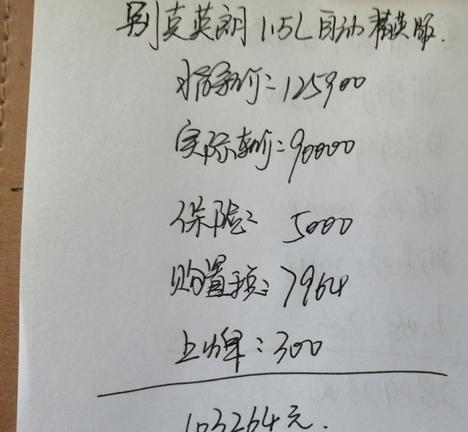 别克英朗 1.5L自动精英版.
指导价:125900
实际车价:90000
保险: 5000
购置税:7964
上牌:300
103264元.